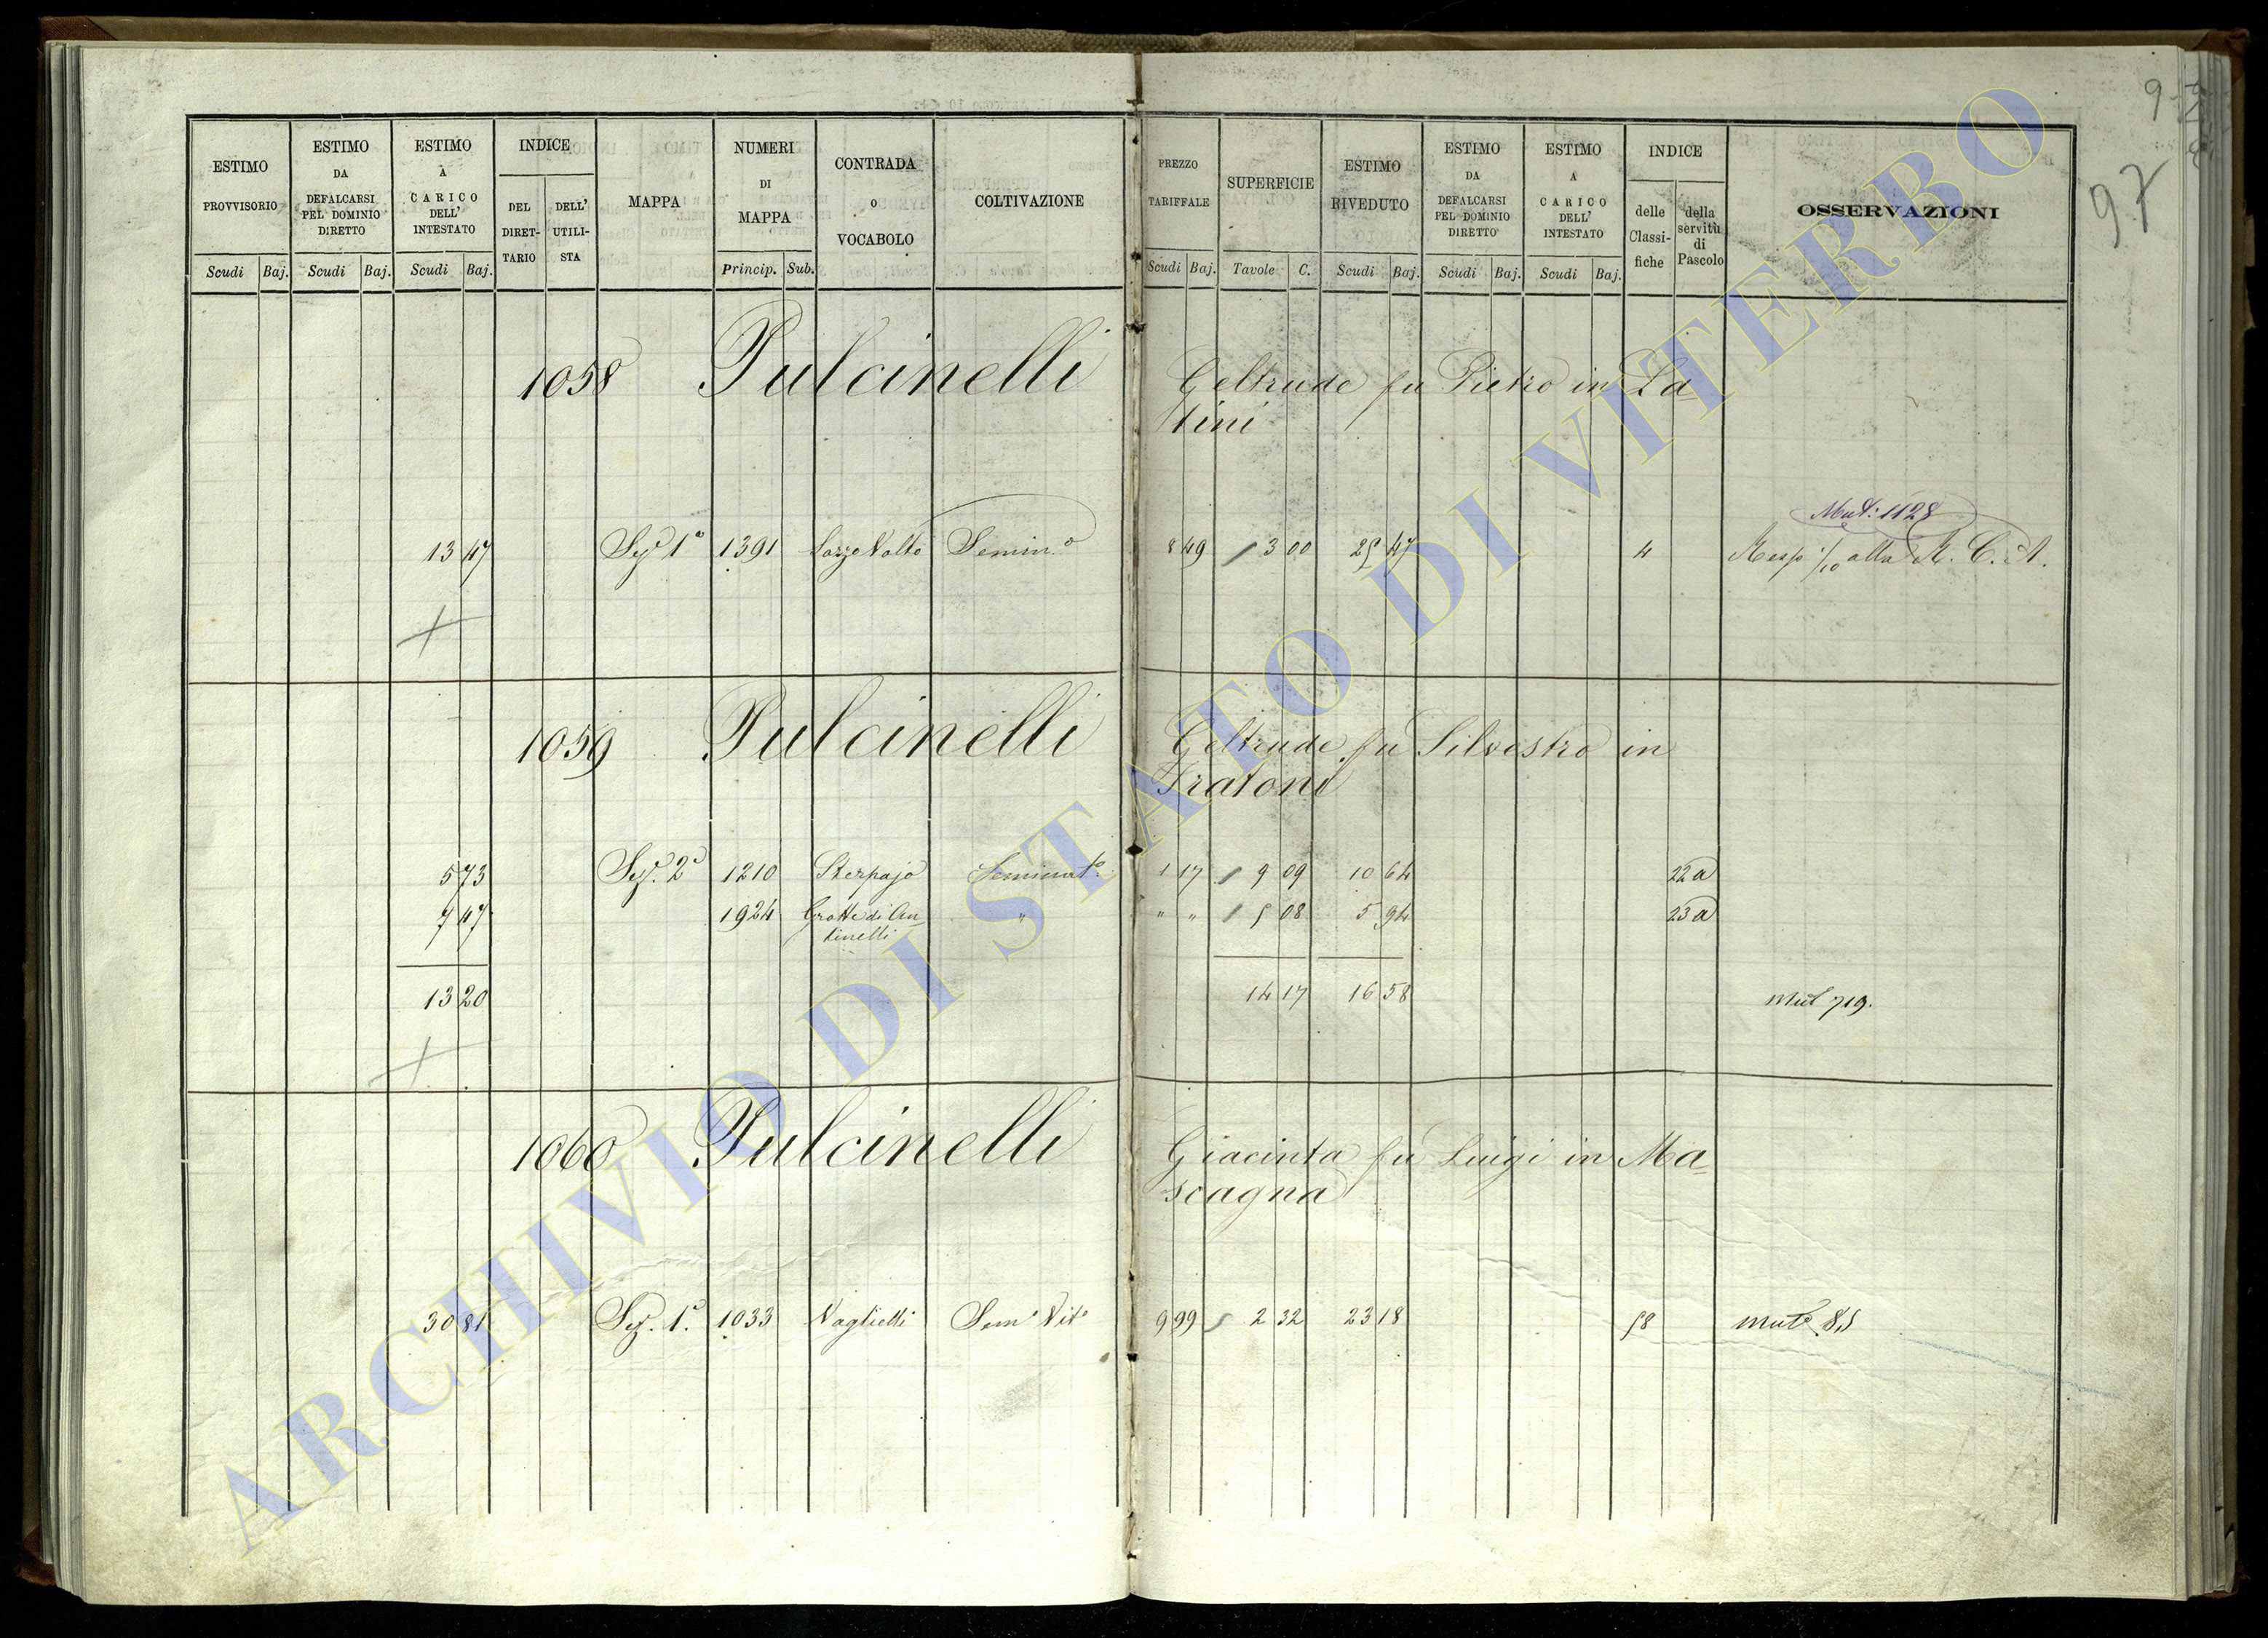 9
97
ESTIMO PROVVISORIO
ESTIMO DA DEFALCARSI PEL DOMINIO DIRETTO
ESTIMO A CARICO DELL' INTESTATO
INDICE
DEL DIRET-TARIO
DELL' UTILI-STA
MAPPA
NUMERI DI MAPPA
CONTRADA o VOCABOLO
COLTIVAZIONE
PREZZO TARIFFALE
SUPERFICIE
ESTIMO RIVEDUTO
ESTIMO DA DEFALCARSI PEL DOMINIO DIRETTO
ESTIMO A CARICO DELL' INTESTATO
INDICE
delle Classi-fiche
della servitù di Pascolo
OSSERVAZIONI
Scudi Baj. Scudi Baj. Scudi Baj. Princip. Sub. Scudi Baj. Tavole C. Scudi Baj. Scudi Baj. Scudi Baj.
1058 Pulcinelli Geltrude fu Pietro in La
tini
Mut: 1128
13 47 Sez. 1a 1391 Seminº 8 49 3 00 25 47 4 Resp 1/10 alla R. C. A.
1059 Pulcinelli Geltrude fu Silvestro in
Fratoni
5 73 Sez. 2a 1210 Sterpajo Seminatº 1 17 9 09 10 64 22 a
7 47 1924 Grotte di An- " " " 5 08 5 94 23 a
tinelli
13 20 14 17 16 58 Mut 719.
1060 Pulcinelli Giacinta fu Luigi in Ma-
scagna
30 81 Sez. 1a 1033 Semº Vitº 9 99 2 32 23 18 58 Mutº 85
ARCHIVIO DI STATO DI VITERBO